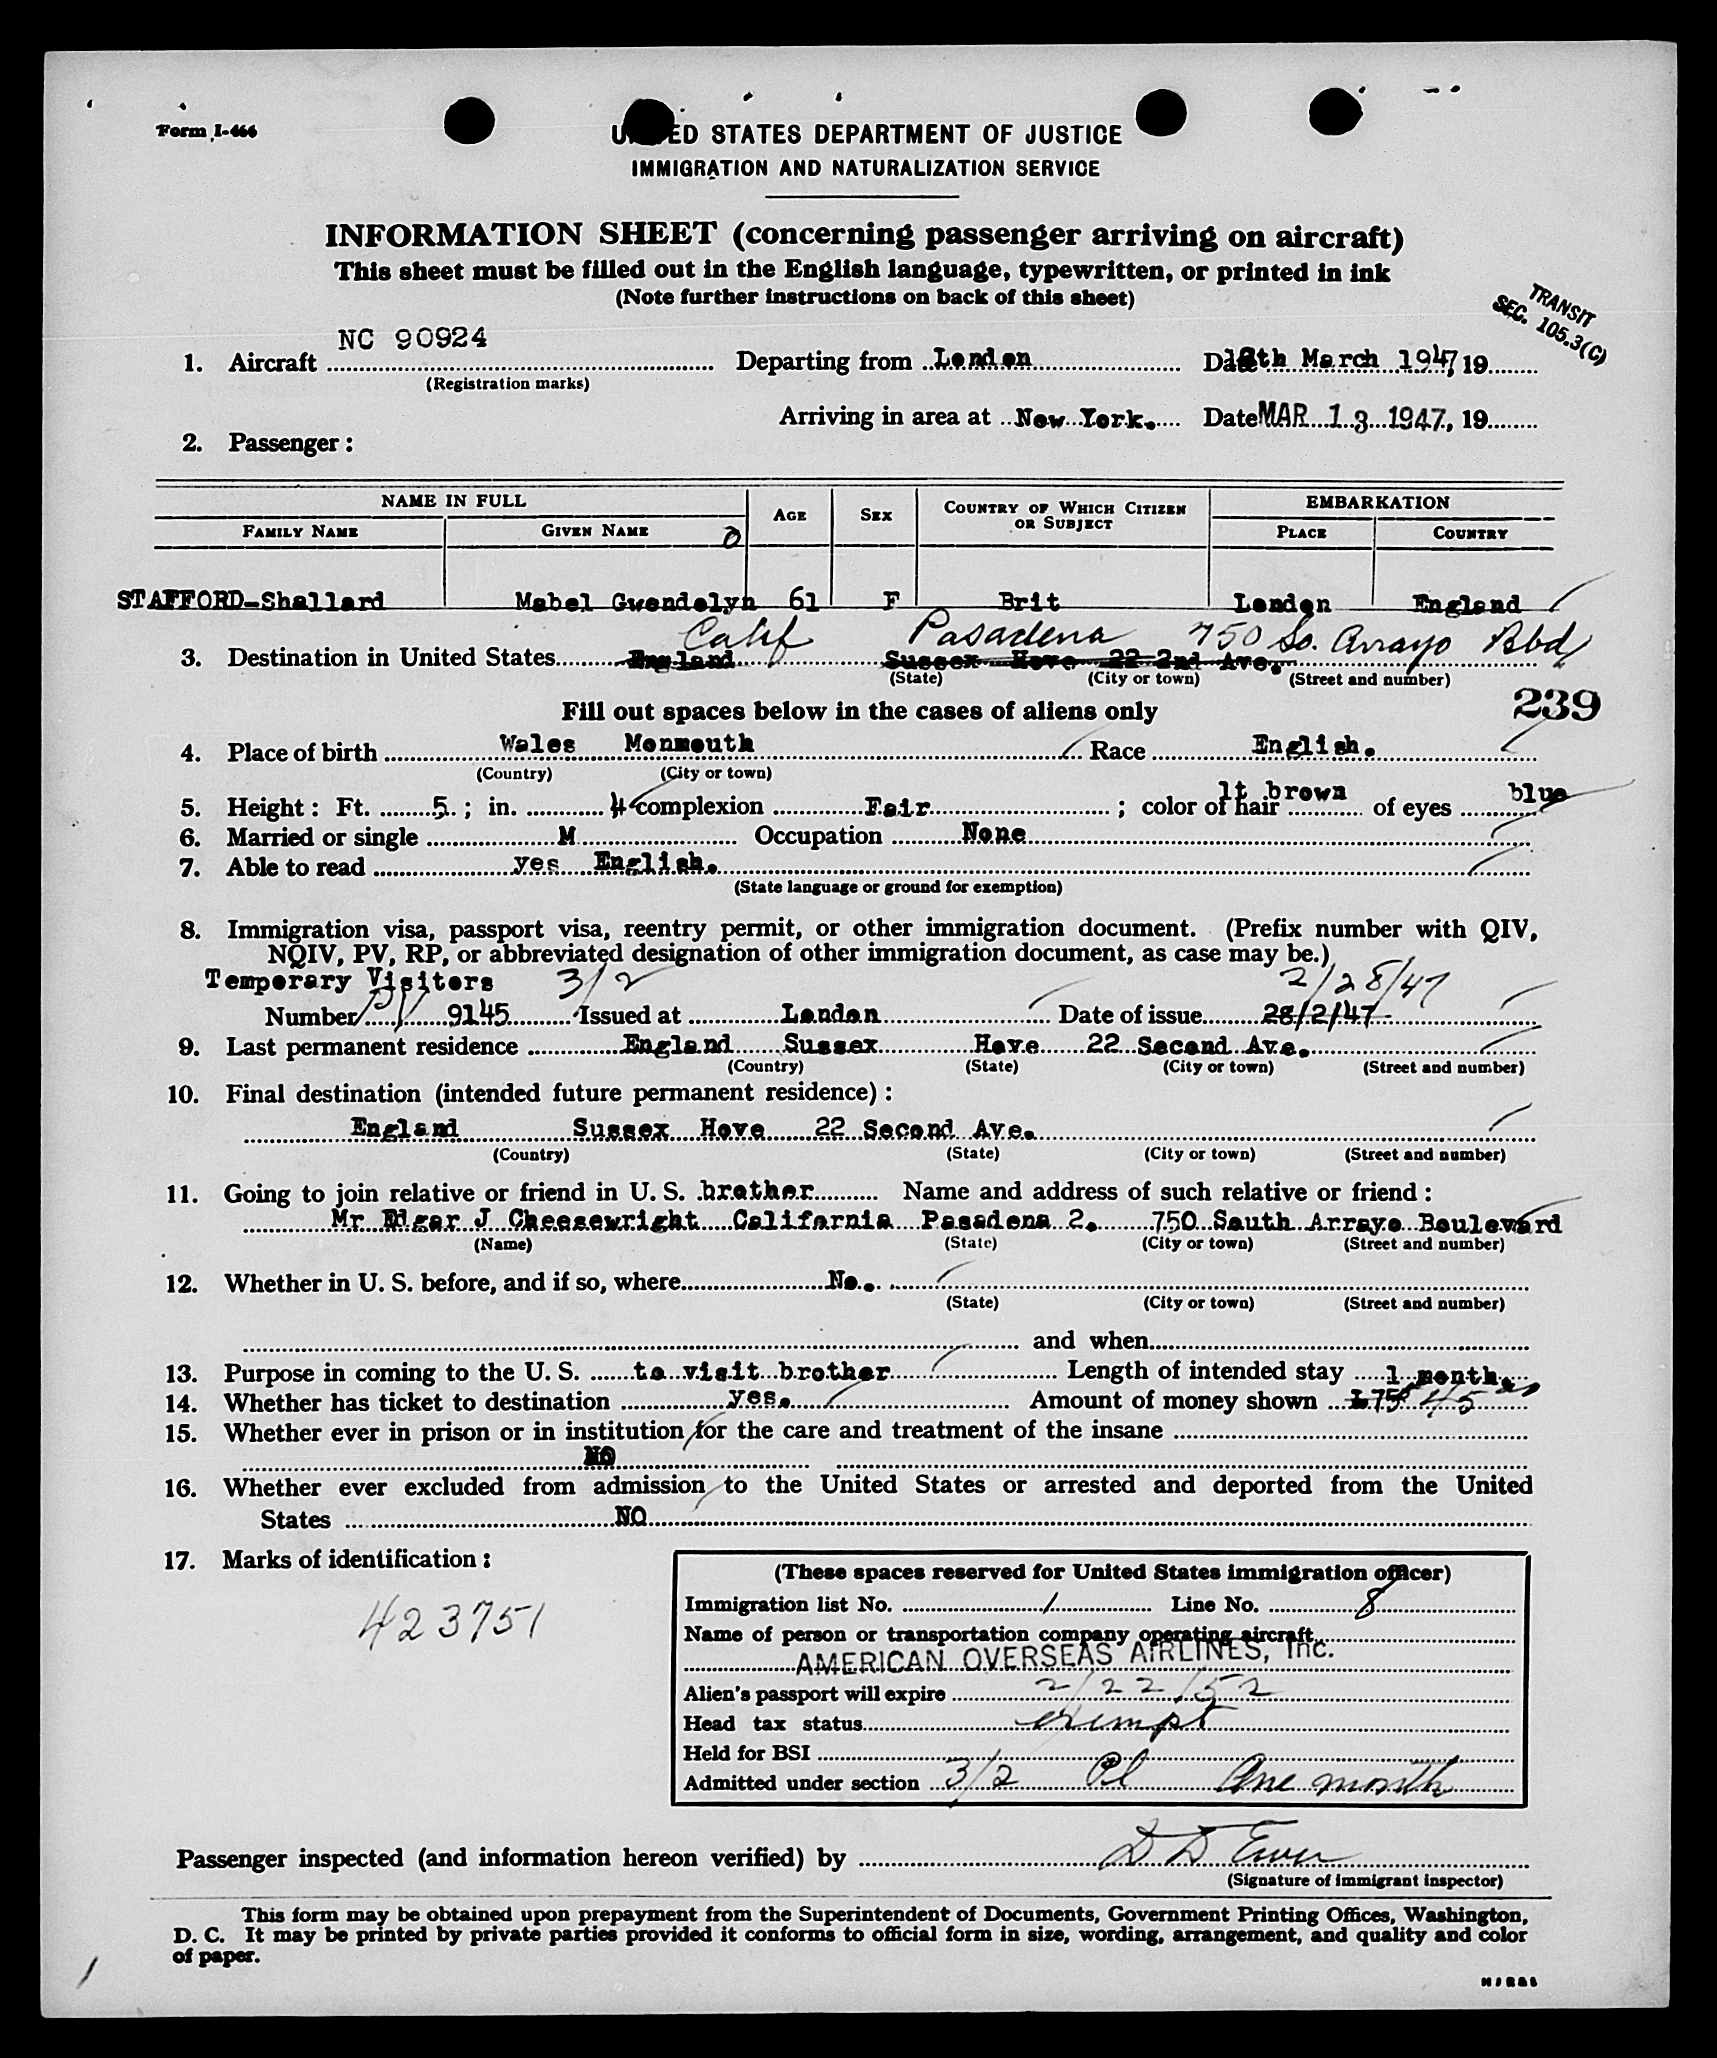 Form I-466
UNITED STATES DEPARTMENT OF JUSTICE
IMMIGRATION AND NATURALIZATION SERVICE
INFORMATION SHEET (concerning passenger arriving on aircraft)
This sheet must be filled out in the English language, typewritten, or printed in ink
(Note further instructions on back of this sheet)
TRANSIT
SEC. 105.3(C)
NC 90924
1. Aircraft Departing from London Date 12th March 1947, 19
(Registration marks)
Arriving in area at New York. Date MAR 13 1947, 19
2. Passenger:
NAME IN FULL AGE SEX COUNTRY OF WHICH CITIZEN OR SUBJECT EMBARKATION
FAMILY NAME GIVEN NAME PLACE COUNTRY
STAFFORD-Shallard Mabel Gwendolyn 61 F Brit London England
Calif Pasadena 750 So. Arrayo Blvd
3. Destination in United States England Sussex Hove 22 2nd Ave.
(State) (City or town) (Street and number)
Fill out spaces below in the cases of aliens only
239
4. Place of birth Wales Monmouth Race English.
(Country) (City or town)
5. Height: Ft. 5 ; in. 4 complexion Fair ; color of hair lt brown of eyes blue
6. Married or single M Occupation None
7. Able to read yes English.
(State language or ground for exemption)
8. Immigration visa, passport visa, reentry permit, or other immigration document. (Prefix number with QIV,
NQIV, PV, RP, or abbreviated designation of other immigration document, as case may be.)
Temporary Visitors 3/2 2/28/47
Number PV 9145 Issued at London Date of issue 28/2/47
9. Last permanent residence England Sussex Hove 22 Second Ave.
(Country) (State) (City or town) (Street and number)
10. Final destination (intended future permanent residence):
England Sussex Hove 22 Second Ave.
(Country) (State) (City or town) (Street and number)
11. Going to join relative or friend in U. S. brother Name and address of such relative or friend:
Mr Edgar J Cheesewright California Pasadena 2. 750 South Arrayo Boulevard
(Name) (State) (City or town) (Street and number)
12. Whether in U. S. before, and if so, where No.
(State) (City or town) (Street and number)
and when
13. Purpose in coming to the U. S. to visit brother Length of intended stay 1 month.
14. Whether has ticket to destination yes. Amount of money shown £75 45
15. Whether ever in prison or in institution for the care and treatment of the insane
NO
16. Whether ever excluded from admission to the United States or arrested and deported from the United
States NO
17. Marks of identification:
423751
(These spaces reserved for United States immigration officer)
Immigration list No. 1 Line No. 8
Name of person or transportation company operating aircraft
AMERICAN OVERSEAS AIRLINES, Inc.
Alien's passport will expire 2/22/52
Head tax status exempt
Held for BSI
Admitted under section 3/2 Pl One month
Passenger inspected (and information hereon verified) by
(Signature of immigrant inspector)
This form may be obtained upon prepayment from the Superintendent of Documents, Government Printing Offices, Washington,
D. C. It may be printed by private parties provided it conforms to official form in size, wording, arrangement, and quality and color
of paper.